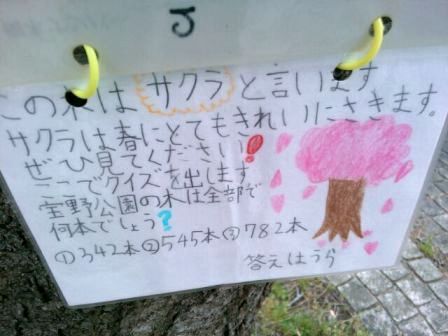 この木はサクラと言います
サクラは春にとてもきれいにさきます。
ぜひ見てください!
ここでクイズを出します
宝野公園の木は全部で
何本でしょう?
①342本②545本③782本
答えはうら